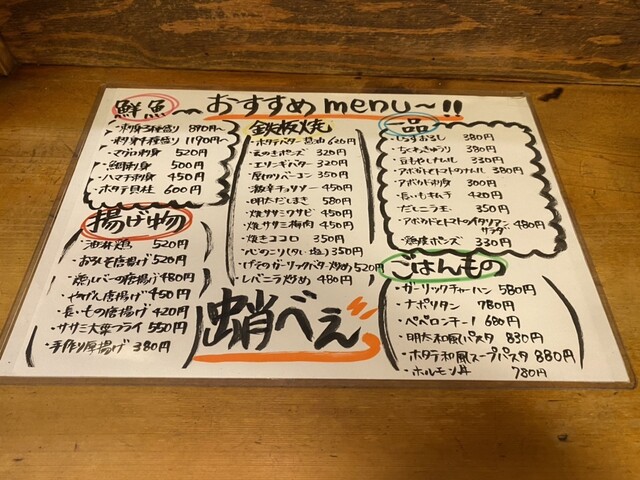 おすすめmenu〜!!
鮮魚
・刺身3種盛り 890円〜
・刺身4種盛り 1190円〜
・マグロ刺身 520円
・鯛刺身 500円
・ハマチ刺身 450円
・ホタテ貝柱 600円
揚げ物
・油淋鶏 520円
・おろしそ唐揚げ 520円
・鶏レバーの唐揚げ 480円
・やげん唐揚げ 450円
・長いもの唐揚げ 420円
・ササミ大葉フライ 550円
・手作り厚揚げ 380円
鉄板焼
・ホタテバター醤油 620円
・えのきポンズ 320円
・エリンギバター 320円
・厚切りベーコン 350円
・激辛チョリソー 450円
・明太だしまき 580円
・焼ササミワサビ 450円
・焼ササミ梅肉 450円
・焼きココロ 350円
(タレ・塩) 350円
・げそのガーリックバター炒め 520円
・レバニラ炒め 480円
蛸べえ
一品
・じゃこおろし 380円
・なくわきゅうり 380円
・豆もやしナムル 330円
・アボカドとトマトのナムル 380円
・アボカド刺身 300円
・長いもキムチ 420円
・だしニラ玉 350円
・アボカドとトマトのイタリアンサラダ 480円
・鶏皮ポンズ 330円
ごはんもの
・ガーリックチャーハン 580円
・ナポリタン 780円
・ペペロンチーノ 680円
・明太和風パスタ 830円
・ホタテ和風スープパスタ 880円
・ホルモン丼 780円